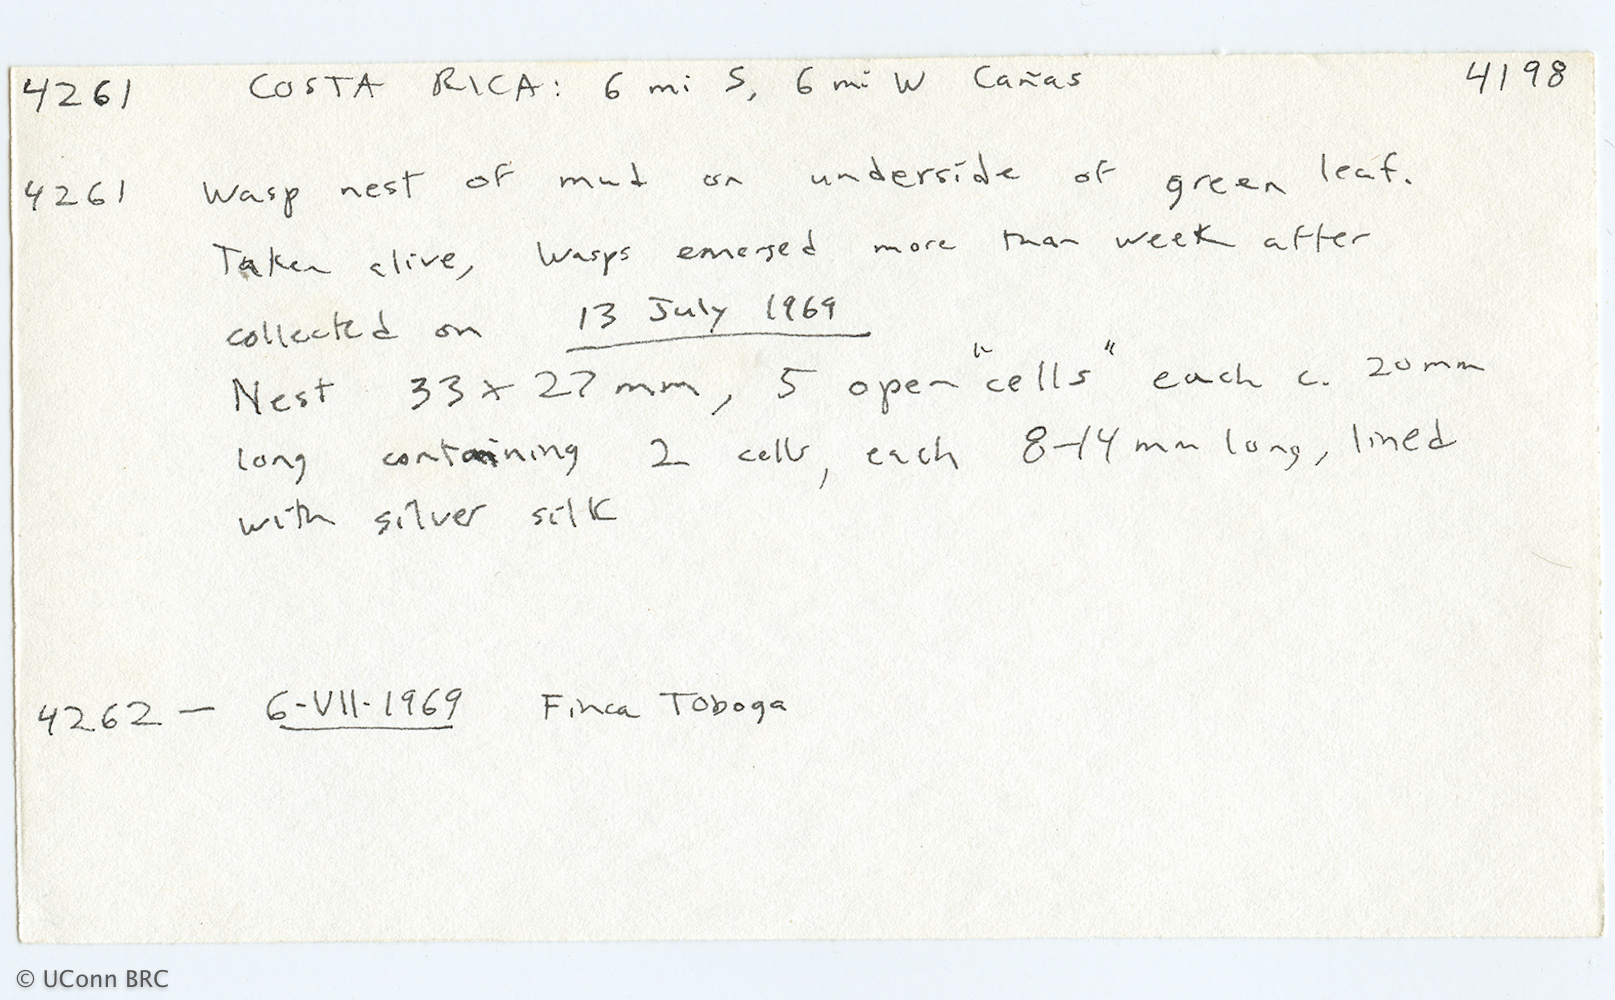 4261 COSTA RICA: 6 mi S, 6 mi W Cañas 4198
4261 Wasp nest of mud on underside of green leaf.
Taken alive, Wasps emerged more than week after
collected on 13 July 1969
Nest 33 x 27 mm, 5 open "cells" each c. 20 mm
long containing 2 cells, each 8-14 mm long, lined
with silver silk
4262 — 6-VII-1969 Finca Toboga
© UConn BRC